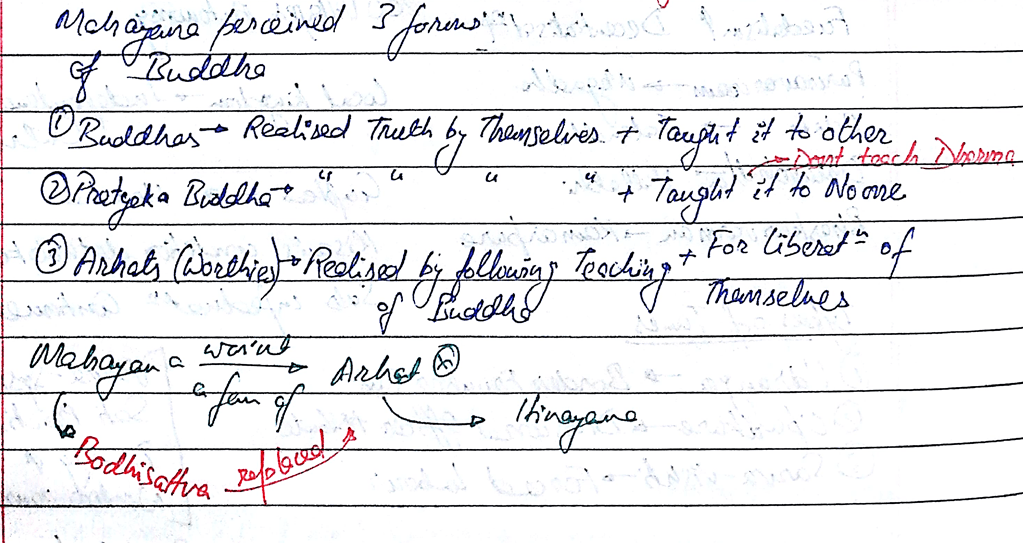 Mahayana perceived 3 forms
of Buddha
① Buddhas → Realised Truth by Themselves + Taught it to other
→ Dont teach Dharma
② Pratyeka Buddha → " " " " + Taught it to No one
③ Arhats (Worthies) → Realised by following Teaching + For Liberatⁿ of
of Buddha Themselves
Mahayana wasn't Arhat
a fan of → Hinayana
Bodhisattva replaced